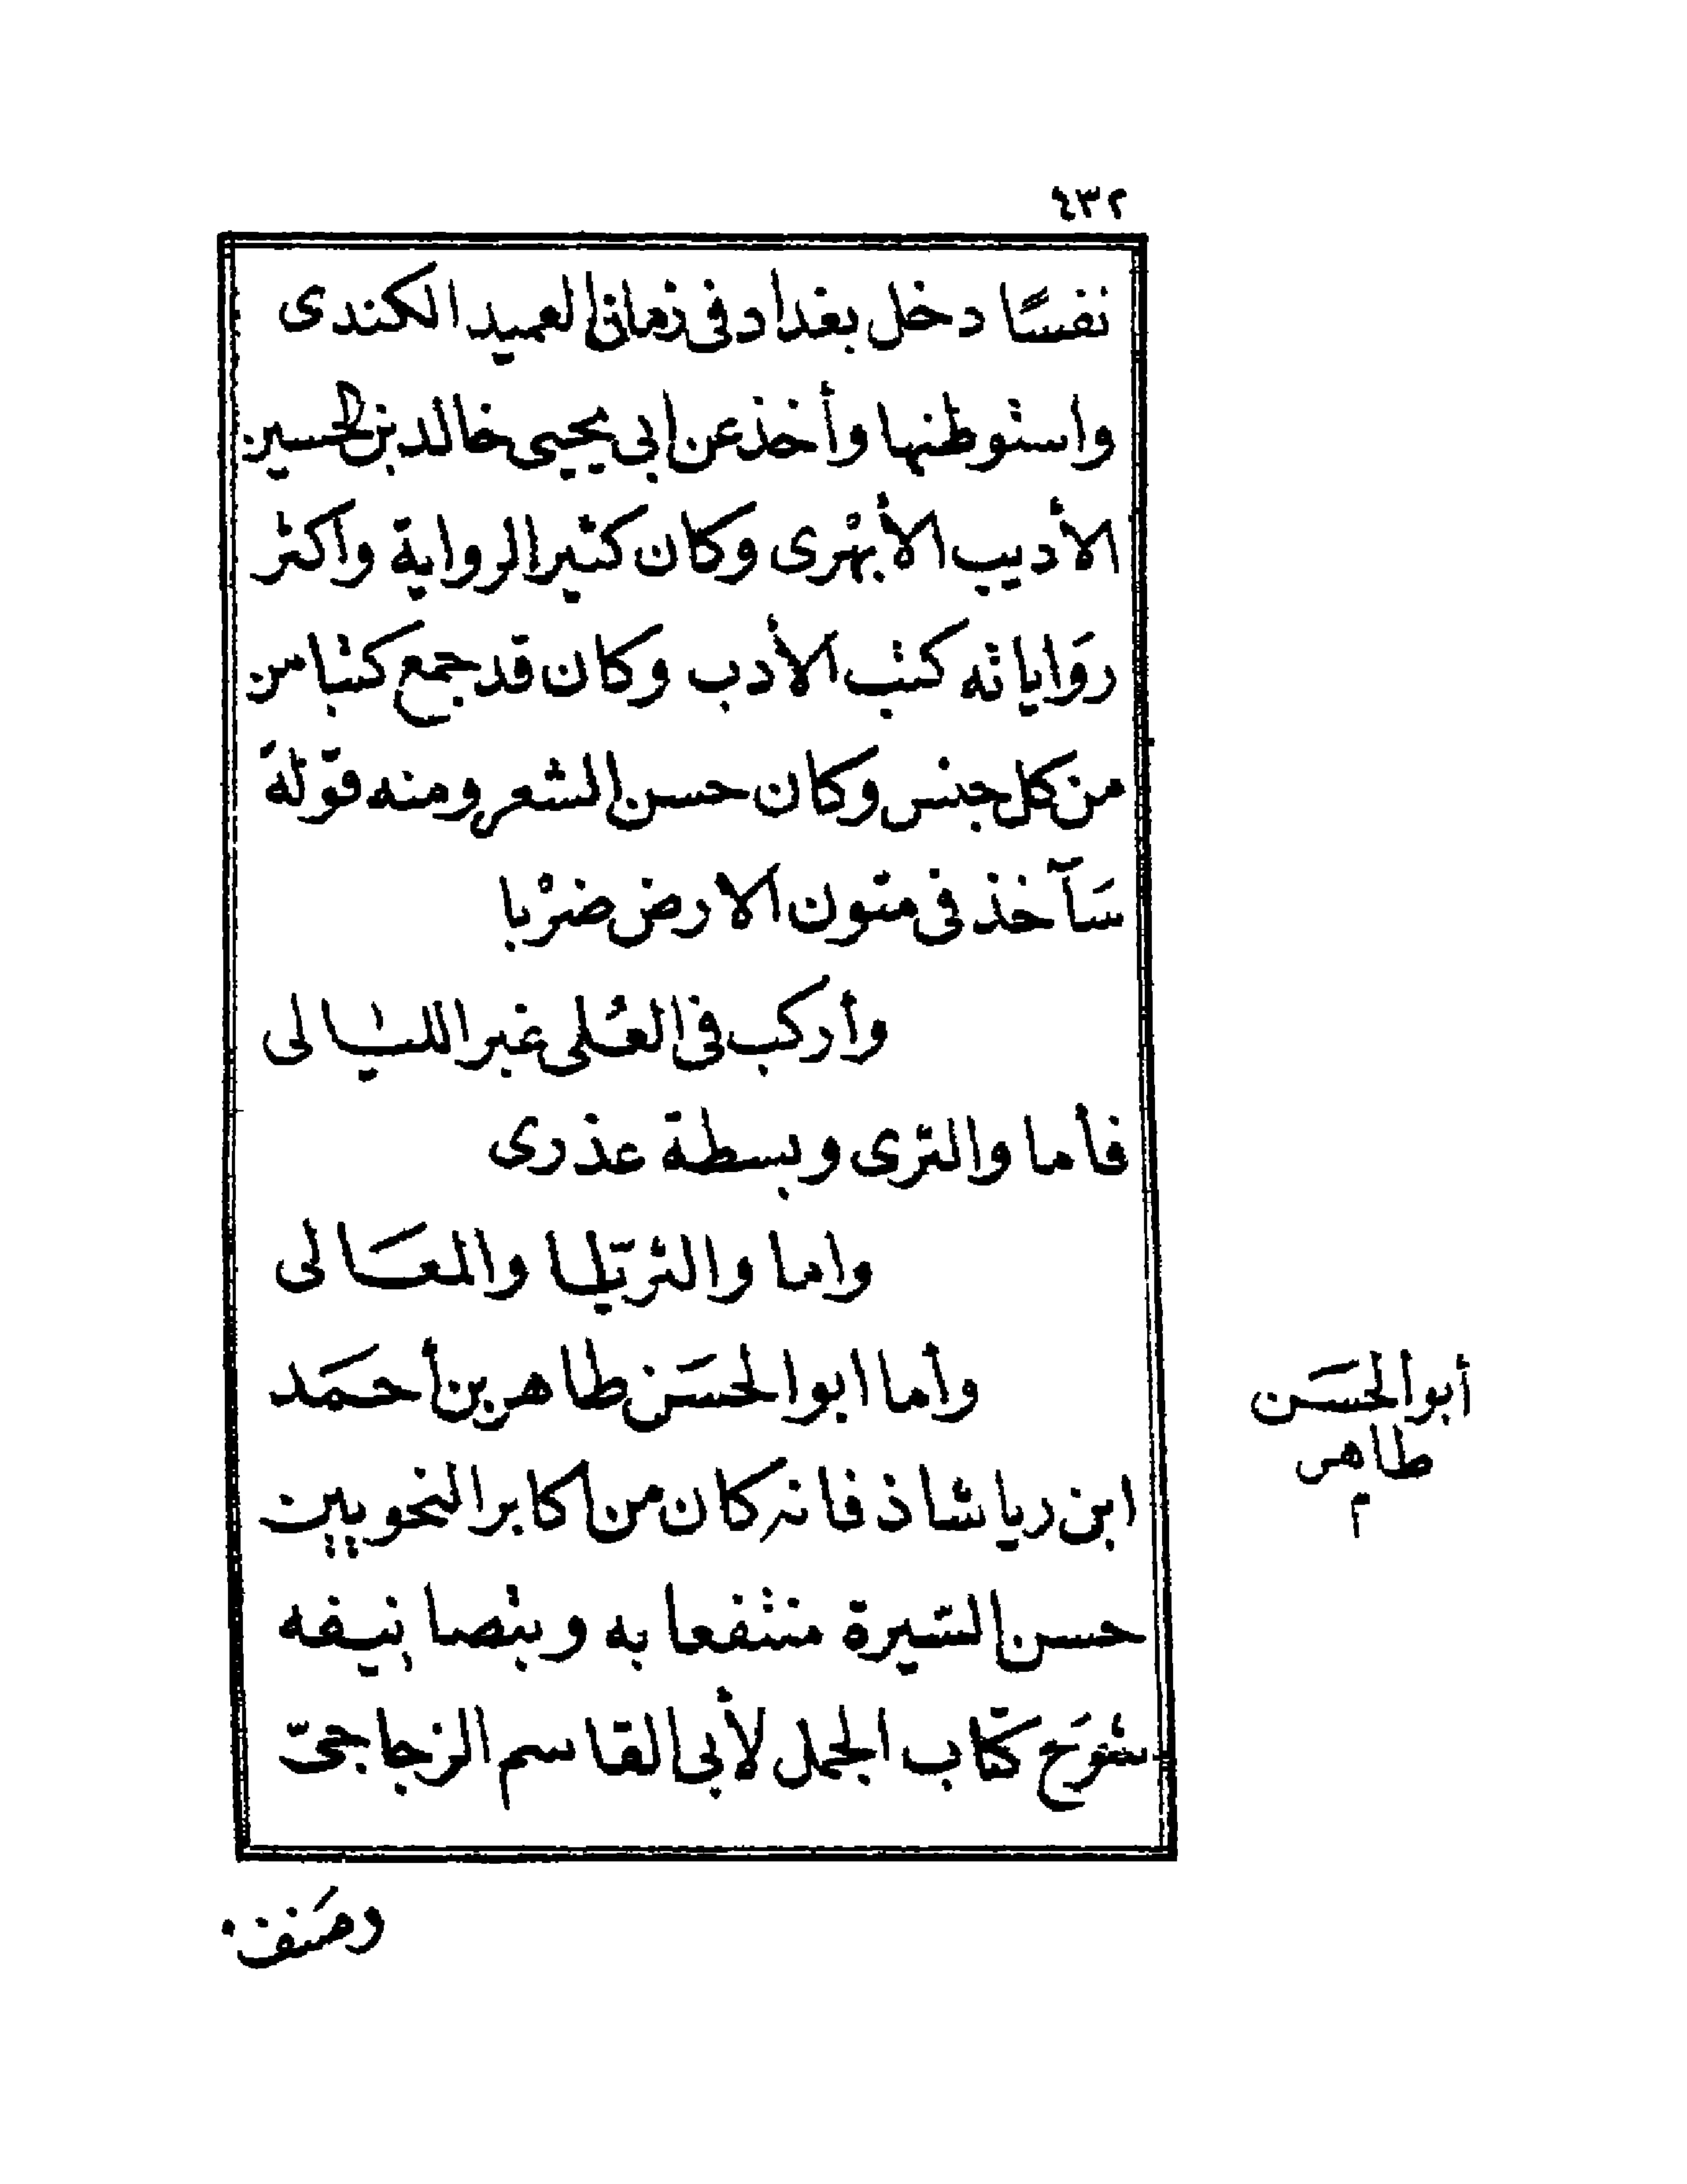 ٤٣٢
نفسًا دخل بغداد فى زمان العميد الكندى
واستوطنها وأخذ عن ابى يحيى خالد بن الحسين
الأديب الأبْهرى وكان كثير الرواية واكثر
روَاياته كتب الأدب وكان قد جمع كتبا من
من كل جنس وكان حسن الشعر ومنه قوَلهُ
سَآخذ فى متون الارض ضرْبا
وأركب فى العُلى غبر الليالى
فأما والثرى وبسطة عذرى
واما والثريّا والمعَالى
وأما ابوالحسَن طاهر بن أحمَد
ابن رياشاذ فانه كان من اكابر النحويين
حسن السّيرة منتفعا به وبتصانيفه
شرَح كتّاب الجمل لأبى القاسم الزجاجىّ
أبوالحسَن
طاهر
م
وصَنف